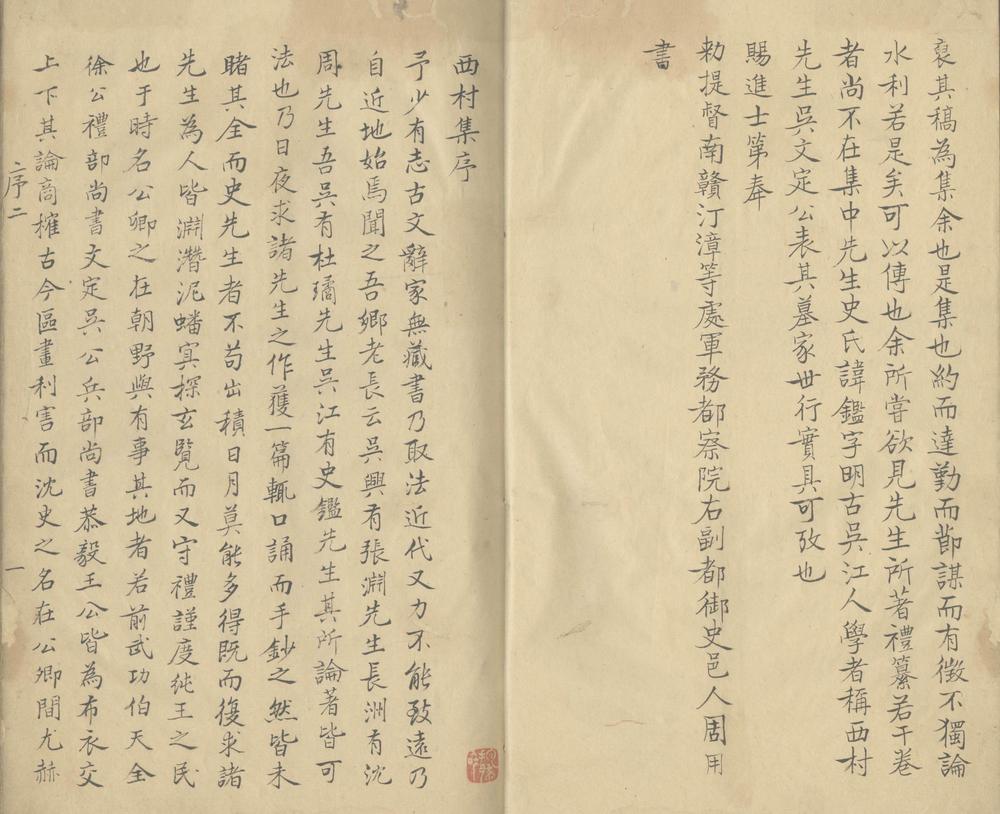 裒其稿為集余也是集也約而達勤而節謀而有徵不獨論
水利若是矣可以傳也余所嘗欲見先生所著禮纂若干卷
者尚不在集中先生史氏諱鑑字明古吳江人學者稱西村
先生吳文定公表其墓家世行實具可攷也
賜進士第奉
勑提督南贛汀漳等處軍務都察院右副都御史邑人周用
書
西村集序
予少有志古文辭家無藏書乃取法近代又力不能致遠乃
自近地始焉聞之吾鄉老長云吳興有張淵先生長洲有沈
周先生吾吳有杜璚先生吳江有史鑑先生其所論著皆可
法也乃日夜求諸先生之作獲一篇輒口誦而手鈔之然皆未
睹其全而史先生者不苟出積日月莫能多得既而復求諸
先生為人皆淵潛泥蟠冥探玄覽而又守禮謹度純王之民
也于時名公卿之在朝野與有事其地者若前武功伯天全
徐公禮部尚書文定吳公兵部尚書恭毅王公皆為布衣交
上下其論商榷古今區畫利害而沈史之名在公卿間尤赫
序二
一